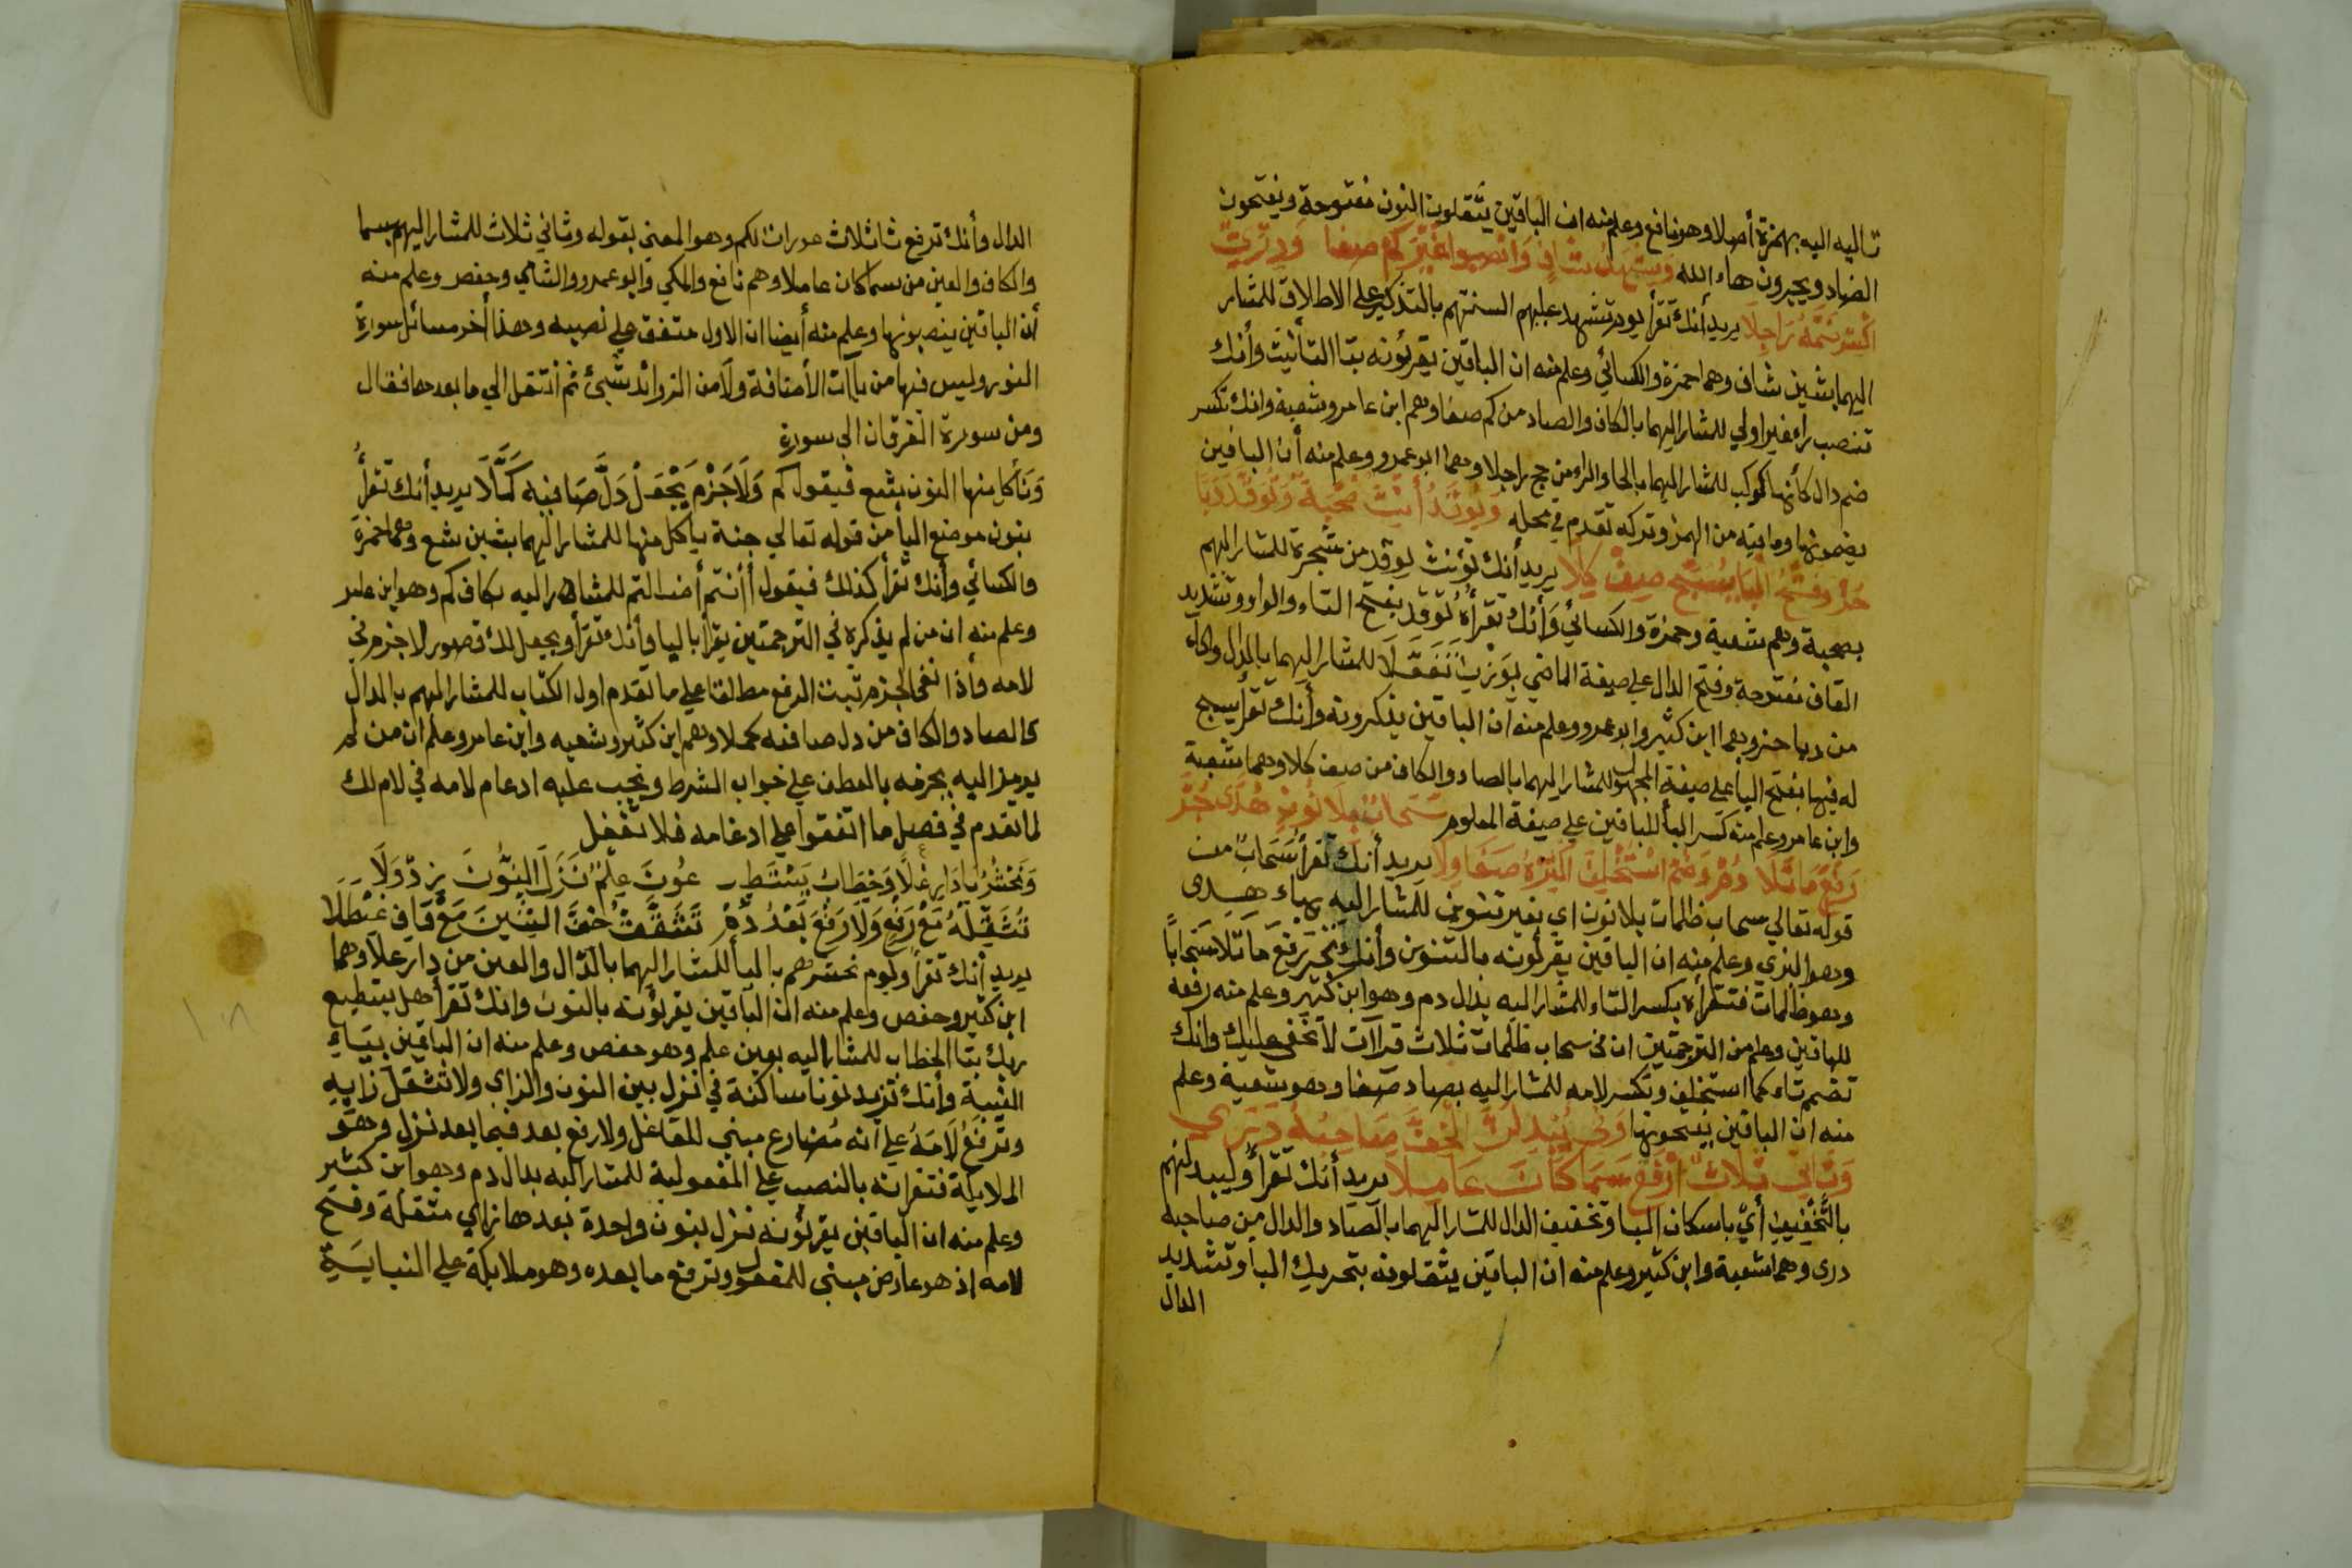 تاليه اليه بهمزة أصلا وهو نافع وعلم منه ان الباقين يثقلون النون مفتوحة ويفتحون
الضاد ويجرون هاء الله ويشهد شاف وانصبوا غير كم صفا ودريّ
اكسر ضمه راجلا يريد أنك تقرأ يوم تشهد عليهم السنتهم بالتذكير على الاطلاق للمشار
اليهما بشين شاف وهما حمزة والكسائي وعلم منه ان الباقين يقرئونه بتا التأنيث وأنك
تنصب راء غير اولي للمشار اليهما بالكاف والصاد من كم صفا وهم ابن عامر وشعبة وانك تكسر
ضم دال كأنها كوكب للمشار اليهما بالحا والراء من حج راجلا وهما ابو عمرو وعلم منه أن الباقين
يضمونها وما فيه من الهمز وتركه تقدم في محله ويوقد أنيث صحبة وتوقد دبا
حز وفتح البا يسبح صف كلا يريد أنك تؤنث يوقد من شجرة للمشار اليهم
بصحبة وهم شعبة وحمزة والكسائي وأنك تقرأه تَوَقَّد بفتح التاء والواو وتشديد
القاف مفتوحة وفتح الدال على صيغة الماضي بوزن تَفَعَّلَا للمشار اليهما بالدال والحاء
من دبا حز وهما ابن كثير وابو عمرو وعلم منه ان الباقين يذكرونه وأنك تقرأ يسبح
له فيها بفتح البا على صيغة المجهول للمشار اليهما بالصاد والكاف من صف كلا وهما شعبة
وابن عامر وعلم منه كسر البا للباقين على صيغة المعلوم سحاب بلا نون هدى جر
رفع ما تلا دم وضم استخلف اكسره صفا ولا يريد أنك تقرأ سحاب من
قوله تعالي سحاب ظلمات بلا نون اي بغير تنوين للمشار اليه بهاء هدى
وهو البزي وعلم منه ان الباقين يقرئونه بالتنوين وأنك تجر رفع ما تلا سحابا
وهو ظلمات فتقرأه بكسر التاء للمشار اليه بدال دم وهو ابن كثير وعلم منه رفعه
للباقين وعلم من الترجمتين ان في سحاب ظلمات ثلاث قراآت لا تخفى عليك وانك
تضم تاء كما استخلف وتكسر لامه للمشار اليه بصاد صفا وهو شعبة وعلم
منه ان الباقين يفتحونها وفي يبدلن الخف صاحبه دري
وثاني ثلاث ارفع سما كان عاملا يريد أنك تقرأ وليبدلنهم
بالتخفيف أي باسكان البا وتخفيف الدال للمشار اليهما بالصاد والدال من صاحبه
درى وهما شعبة وابن كثير وعلم منه ان الباقين يثقلونه بتحريك البا وتشديد
الدال
الدال وأنك ترفع ثا ثلاث عورات لكم وهو المعنى بقوله وثاني ثلاث للمشار اليهم بسما
والكاف والعين من سما كان عاملا وهم نافع والمكي وابو عمرو والشامي وحفص وعلم منه
أن الباقين ينصبونها وعلم منه أيضا ان الاول متفق على نصبه وهذا أخر مسائل سورة
النور وليس فيها من باآت الأضافة ولا من الزوائد شيئ ثم انتقل الي ما بعدها فقال
ومن سورة الفرقان الى سورة
ونأكل منها النون يشع فيقول كم ولا جزم يجعل دل صافيه كملا يريد أنك تقرأ
بنون موضع اليا من قوله تعالي جنة يأكل منها للمشار اليهما بشين شع وهما حمزة
والكسائي وأنك تقرأ كذلك فيقول أأنتم أضللتم للمشار اليه بكاف كم وهو ابن عامر
وعلم منه ان من لم يذكره في الترجمتين يقرأ باليا وأنك تقرأ ويجعل لك قصور لا جزم في
لامه وأذا انتفى الجزم ثبت الرفع مطلقا على ما تقدم اول الكتاب للمشار اليهم بالدال
والصاد والكاف من دل صافيه كملا وهم ابن كثير وشعبه وابن عامر وعلم ان من لم
يرمز اليه يجزمه بالعطف على جواب الشرط ويجب عليه ادغام لامه في لام لك
لما تقدم في فصل ما اتفقوا على ادغامه فلا تغفل
ونحشر يا دار علا وخطاب يستطيـ ـعون علم نزل النون زد ولا
تثقيله مع رفع ولا رفع بعد دم تشقق خف الشين مع قاف غيطلا
يريد أنك تقرأ ويوم نحشرهم باليا للمشار اليهما بالدال والعين من دار علا وهما
ابن كثير وحفص وعلم منه ان الباقين يقرئونه بالنون وانك تقرأ هل يستطيع
ربك بتا الخطاب للمشار اليه بعين علم وهو حفص وعلم منه ان الباقين بيَاء
الغيبة وأنك تزيد نونا ساكنة في نزل بين النون والزاي ولا تثقل زايه
وترفع لامه على انه مضارع مبني للفاعل ولا رفع بعد فيما بعد نزل وهو
الملايكة فتقرانه بالنصب على المفعولية للمشار اليه بدال دم وهو ابن كثير
وعلم منه ان الباقين يقرئونه نزل بنون واحدة بعدها زاي مثقلة وفتح
لامه اذ هو عارض مبني للمفعول وترفع ما بعده وهو ملايكة على النيابة
١٠٨